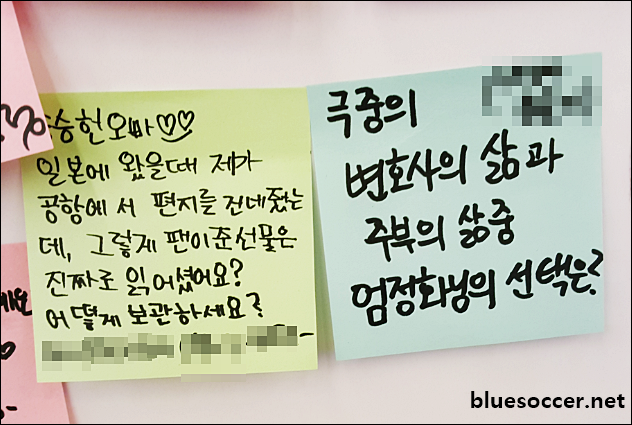 승헌오빠♡♡
일본에 왔을때 제가
공항에서 편지를 건네줬는
데, 그렇게 팬이준선물은
진짜로 읽어셨어요?
어떻게 보관하세요?
극중의
변호사의 삶과
주부의 삶중
엄정화님의 선택은?
bluesoccer.net